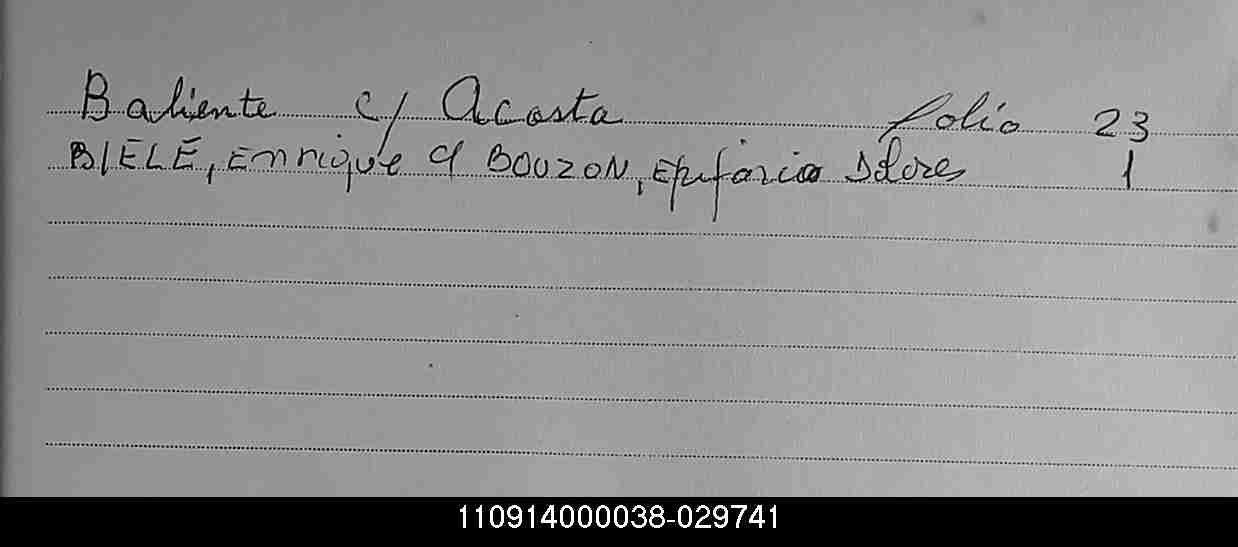 Baliente c/ Acosta folio 23
BIELE, Enrique c/ BOUZON, Epifania Dolores 1
110914000038-029741